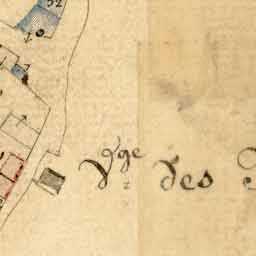 52
V.ge des